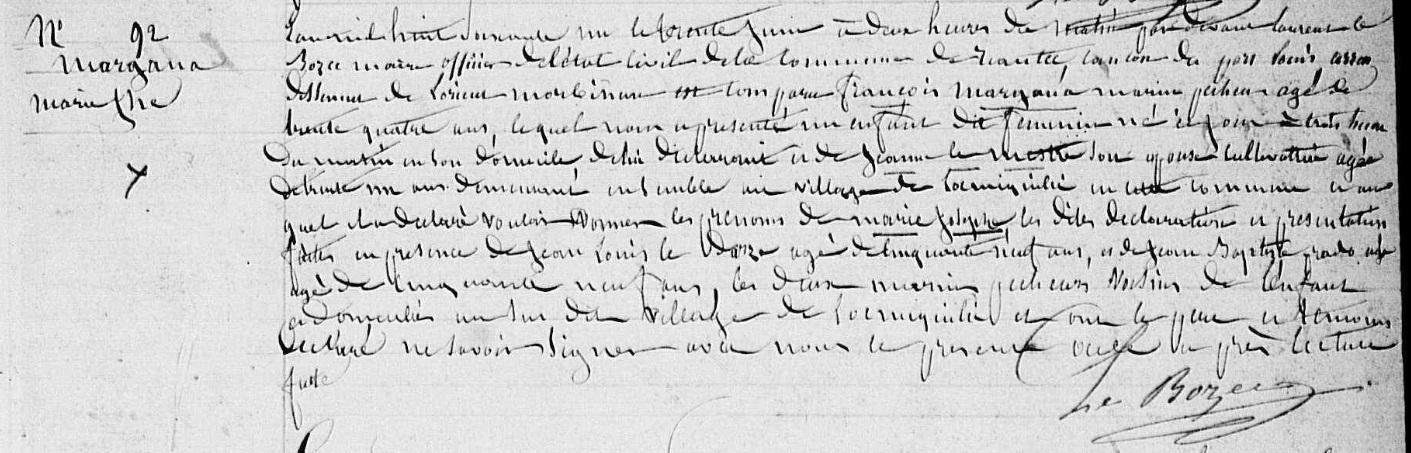 N° 92
Margana
marie Jhe
L'an mil huit soixante un le trente Juin à deux heures du matin par devant laurent le
Bozec maire officier de l'état Civil de la Commune de riantec, canton du port Louis arron
dissement de Lorient morbihan est Comparu françois Margana marin pêcheur agé de
trente quatre ans, lequel nous a presenté un enfant du feminin né ce jour à trois heures
du matin en son domicile de lui declarant et de Jeanne le mestre son epouse cultivatrice agée
de trente un ans demeurant ensemble au village de Locmiquélic en cette commune et au
quel il a declaré vouloir donner les prenoms de marie Josephe les dites declaration et presentation
faites en presence de Jean Louis le agé de cinquante neuf ans, et de Jean Baptiste
agé de cinquante neuf ans, les deux marins pêcheurs Voisins de l'enfant
et domiciliés au sus dit Village de Locmiquélic et ont le pere et temoins
declaré ne savoir signer avec nous le present acte après lecture
faite
Le Bozec